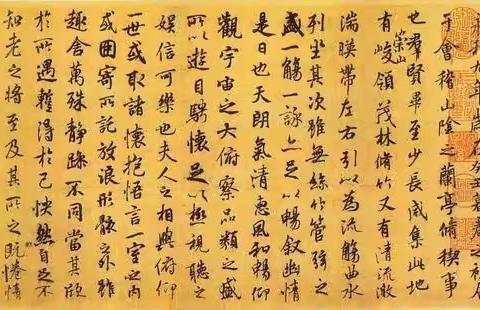 九年
于會稽山陰之蘭亭脩禊事
也羣賢畢至少長咸集此地
有崇山峻領茂林脩竹又有清流激
湍暎帶左右引以為流觴曲水
列坐其次雖無絲竹管弦之
盛一觴一詠亦足以暢叙幽情
是日也天朗氣清惠風和暢仰
觀宇宙之大俯察品類之盛
所以遊目騁懷足以極視聽之
娛信可樂也夫人之相與俯仰
一世或取諸懷抱悟言一室之內
或因寄所託放浪形骸之外雖
趣舍萬殊靜躁不同當其欣
於所遇蹔得於己怏然自足不
知老之將至及其所之既惓情